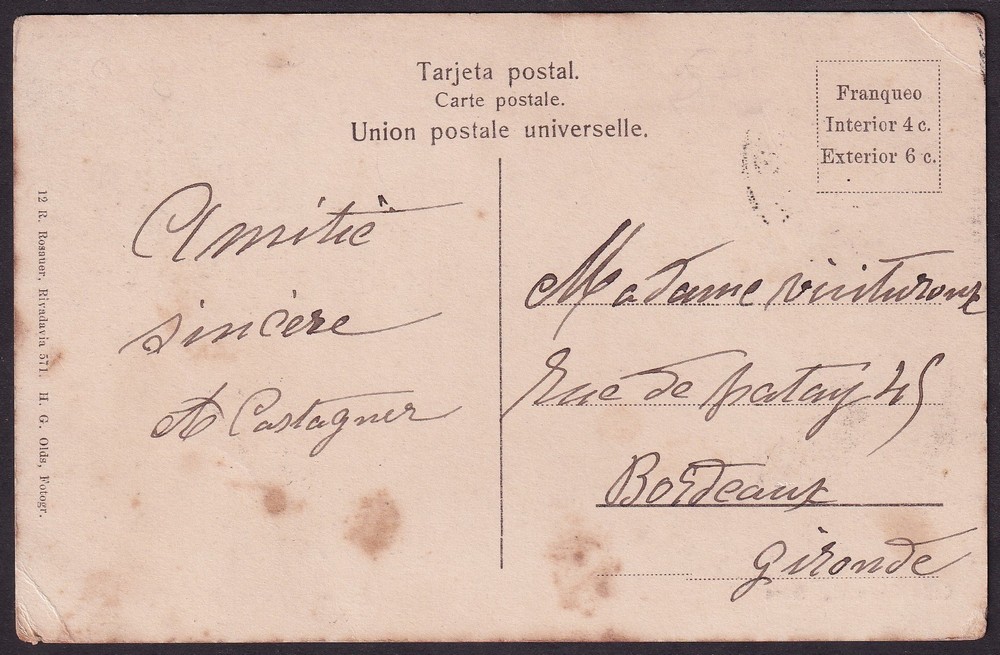 Tarjeta postal.
Carte postale.
Union postale universelle.
Franqueo
Interior 4 c.
Exterior 6 c.
12 R. Rosauer, Rivadavia 571. H. G. Olds, Fotogr.
Amitié
sincère
A Castagner
Madame
Rue de Patay 45
Bordeaux
Gironde